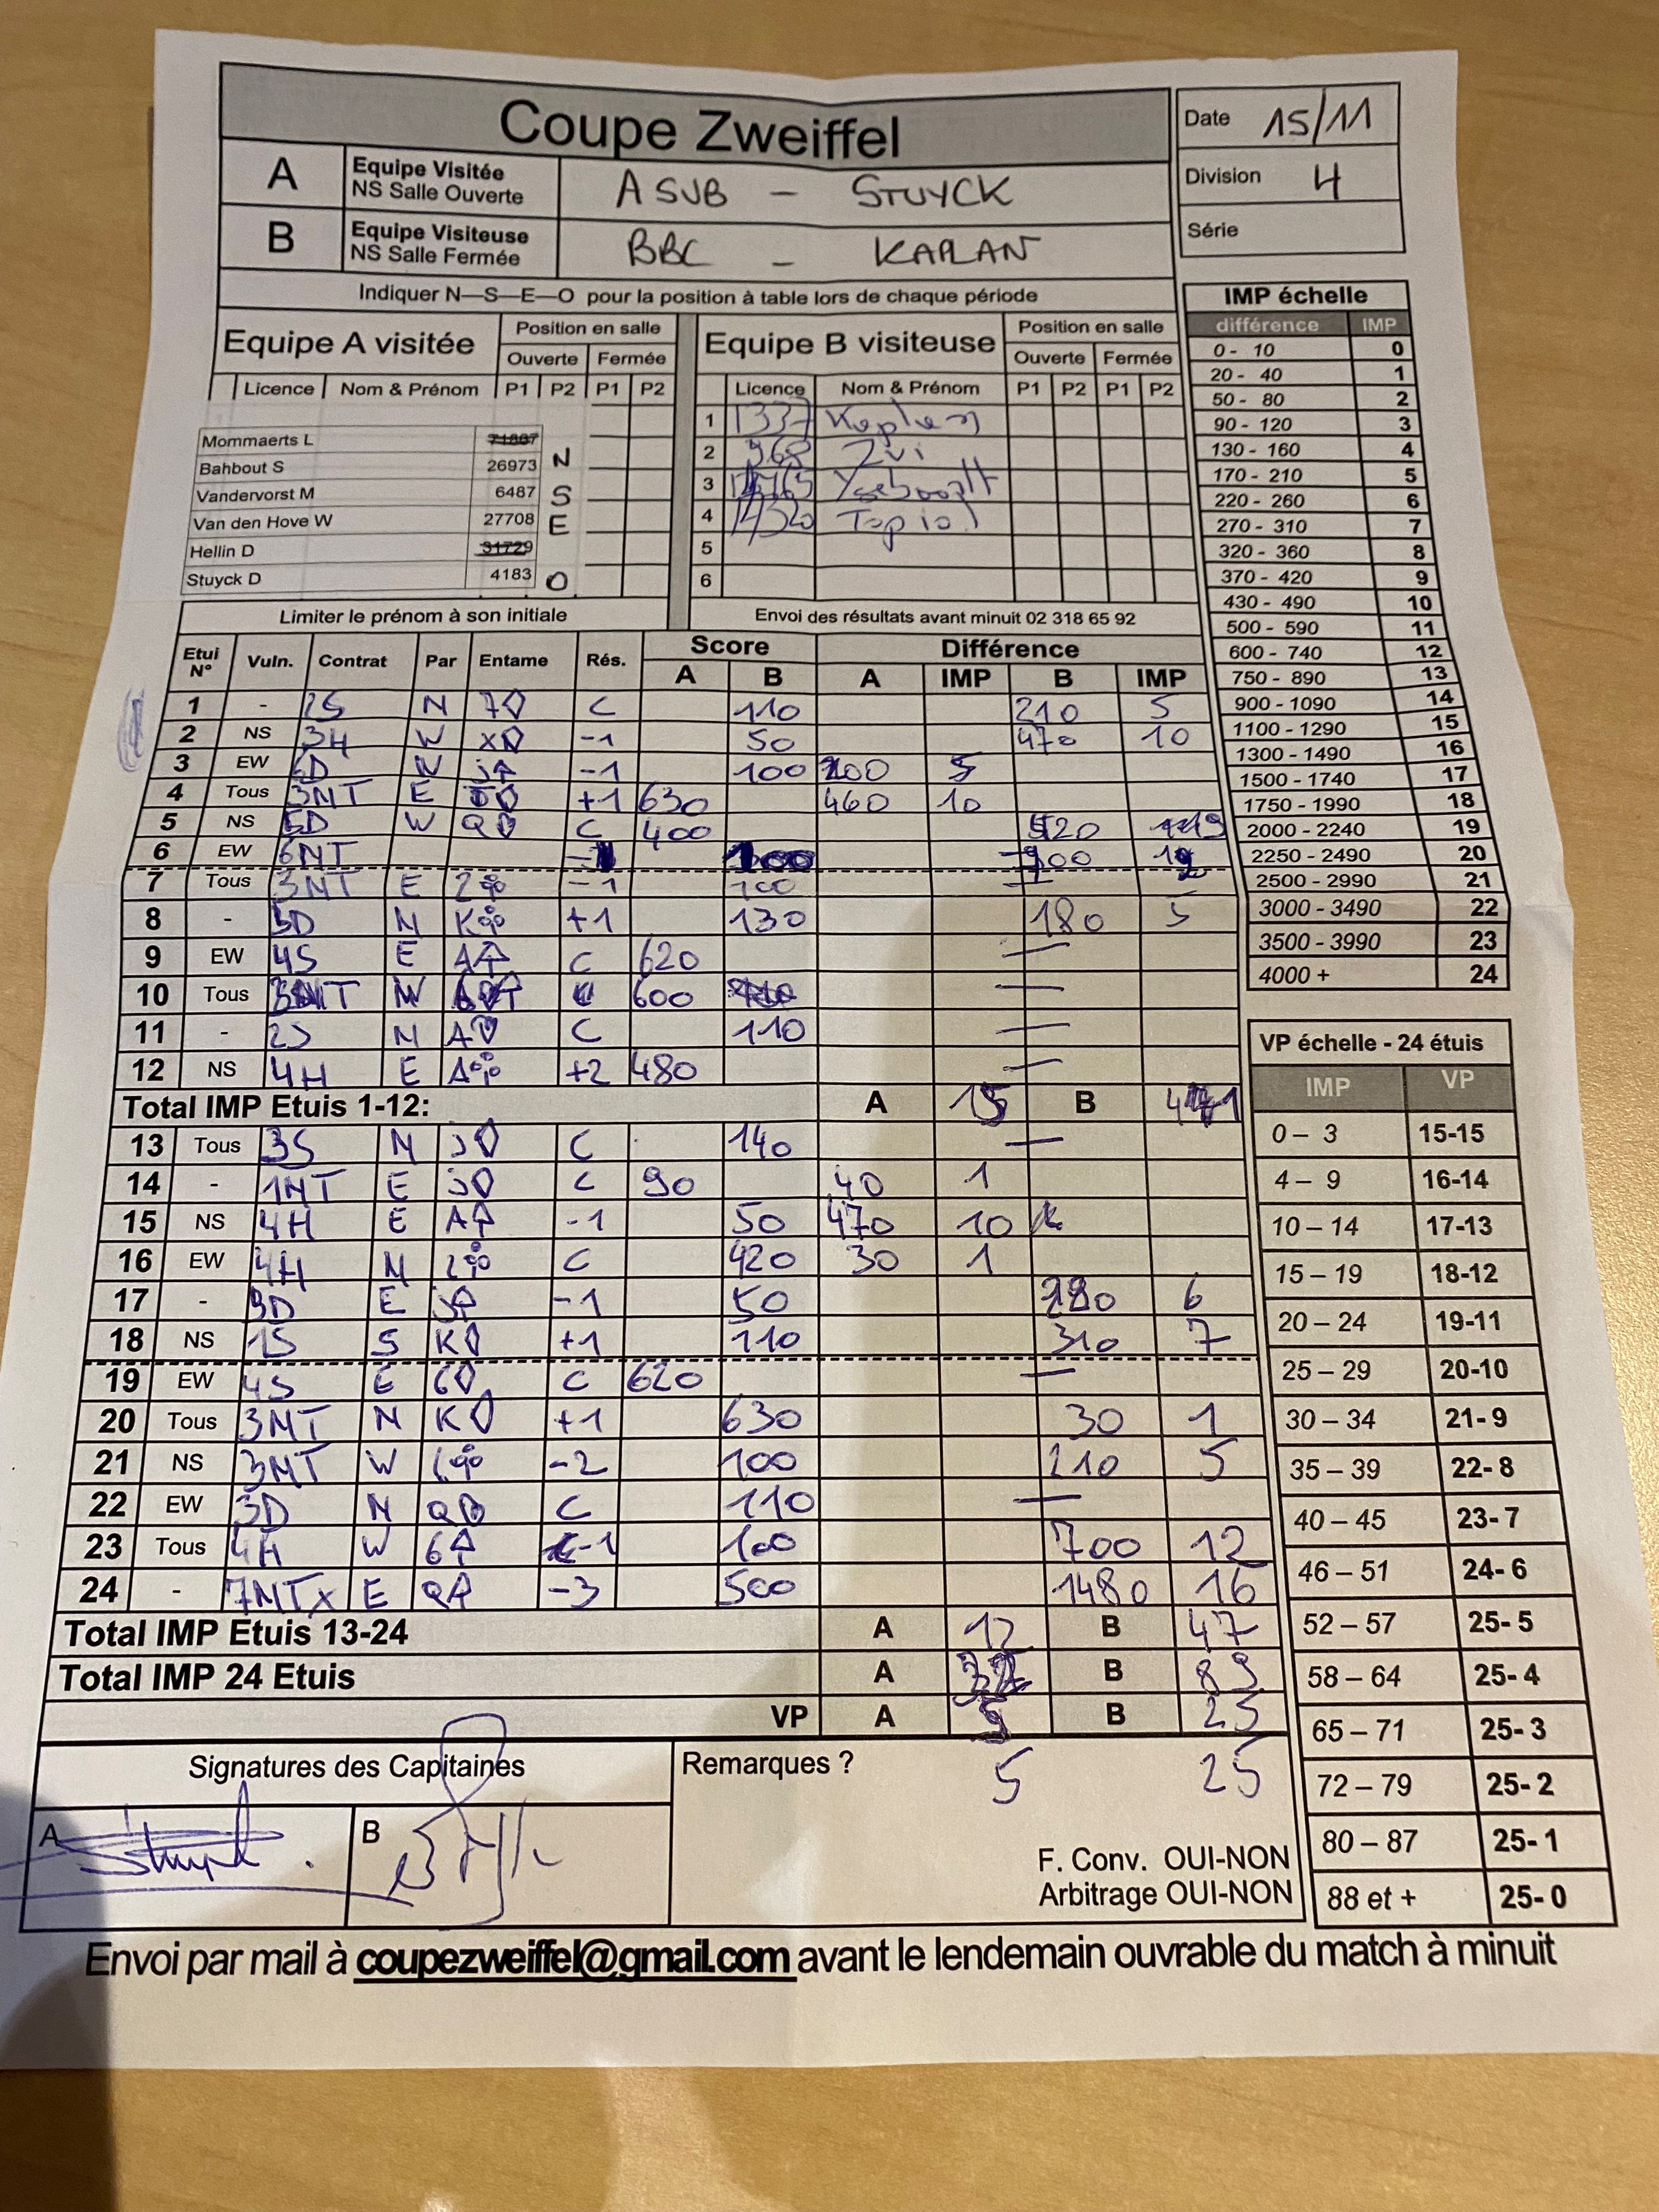 Coupe Zweiffel
Date 15/11
A Equipe Visitée NS Salle Ouverte ASUB - STUYCK
Division 4
B Equipe Visiteuse NS Salle Fermée BBC - KAPLAN
Série
Indiquer N—S—E—O pour la position à table lors de chaque période
Equipe A visitée Position en salle Equipe B visiteuse Position en salle
Ouverte Fermée Ouverte Fermée
Licence Nom & Prénom P1 P2 P1 P2 Licence Nom & Prénom P1 P2 P1 P2
Mommaerts L 1 1337 Kaplan
Bahbout S 26973 N 2 968 Zvi
Vandervorst M 6487 S 3
Van den Hove W 27708 E 4
Hellin D 31729 5
Stuyck D 4183 O 6
Limiter le prénom à son initiale Envoi des résultats avant minuit 02 318 65 92
Etui N° Vuln. Contrat Par Entame Rés. Score Différence
A B A IMP B IMP
1 - 2S N 7♢ C 110 210 5
2 NS 3H W x♢ -1 50 470 10
3 EW N J♤ -1 100 5
4 Tous 3NT E +1 630 460 10
5 NS 5D W C 400
6 EW 6NT
7 Tous 3NT E 2♧ -1 100 —
8 - N K♧ +1 130 180 5
9 EW 4S E A♤ C 620 —
10 Tous 600 —
11 - 2S N A♡ C 110 —
12 NS 4H E A♧ +2 480 —
Total IMP Etuis 1-12: A B
13 Tous 3S N J♢ C 140 —
14 - 1NT E J♢ C 90 40 1
15 NS 4H E A♤ -1 50 470 10
16 EW 4H N 2♧ C 420 30 1
17 - E J♤ -1 50 6
18 NS 1S S K♢ +1 110 310 7
19 EW 4S E 6♢ C 620 —
20 Tous 3NT N K♢ +1 630 30 1
21 NS 3NT W 6♧ -2 100 210 5
22 EW 3D N C 110 —
23 Tous 4H W 6♤ -1 100 700 12
24 - 7NTx E Q♤ -3 500 1480 16
Total IMP Etuis 13-24 A 12 B 47
Total IMP 24 Etuis A B
VP A B 25
Signatures des Capitaines Remarques ? 5 25
A B
F. Conv. OUI-NON
Arbitrage OUI-NON
IMP échelle
différence IMP
0 - 10 0
20 - 40 1
50 - 80 2
90 - 120 3
130 - 160 4
170 - 210 5
220 - 260 6
270 - 310 7
320 - 360 8
370 - 420 9
430 - 490 10
500 - 590 11
600 - 740 12
750 - 890 13
900 - 1090 14
1100 - 1290 15
1300 - 1490 16
1500 - 1740 17
1750 - 1990 18
2000 - 2240 19
2250 - 2490 20
2500 - 2990 21
3000 - 3490 22
3500 - 3990 23
4000 + 24
VP échelle - 24 étuis
IMP VP
0 – 3 15-15
4 – 9 16-14
10 – 14 17-13
15 – 19 18-12
20 – 24 19-11
25 – 29 20-10
30 – 34 21- 9
35 – 39 22- 8
40 – 45 23- 7
46 – 51 24- 6
52 – 57 25- 5
58 – 64 25- 4
65 – 71 25- 3
72 – 79 25- 2
80 – 87 25- 1
88 et + 25- 0
Envoi par mail à coupezweiffel@gmail.com avant le lendemain ouvrable du match à minuit